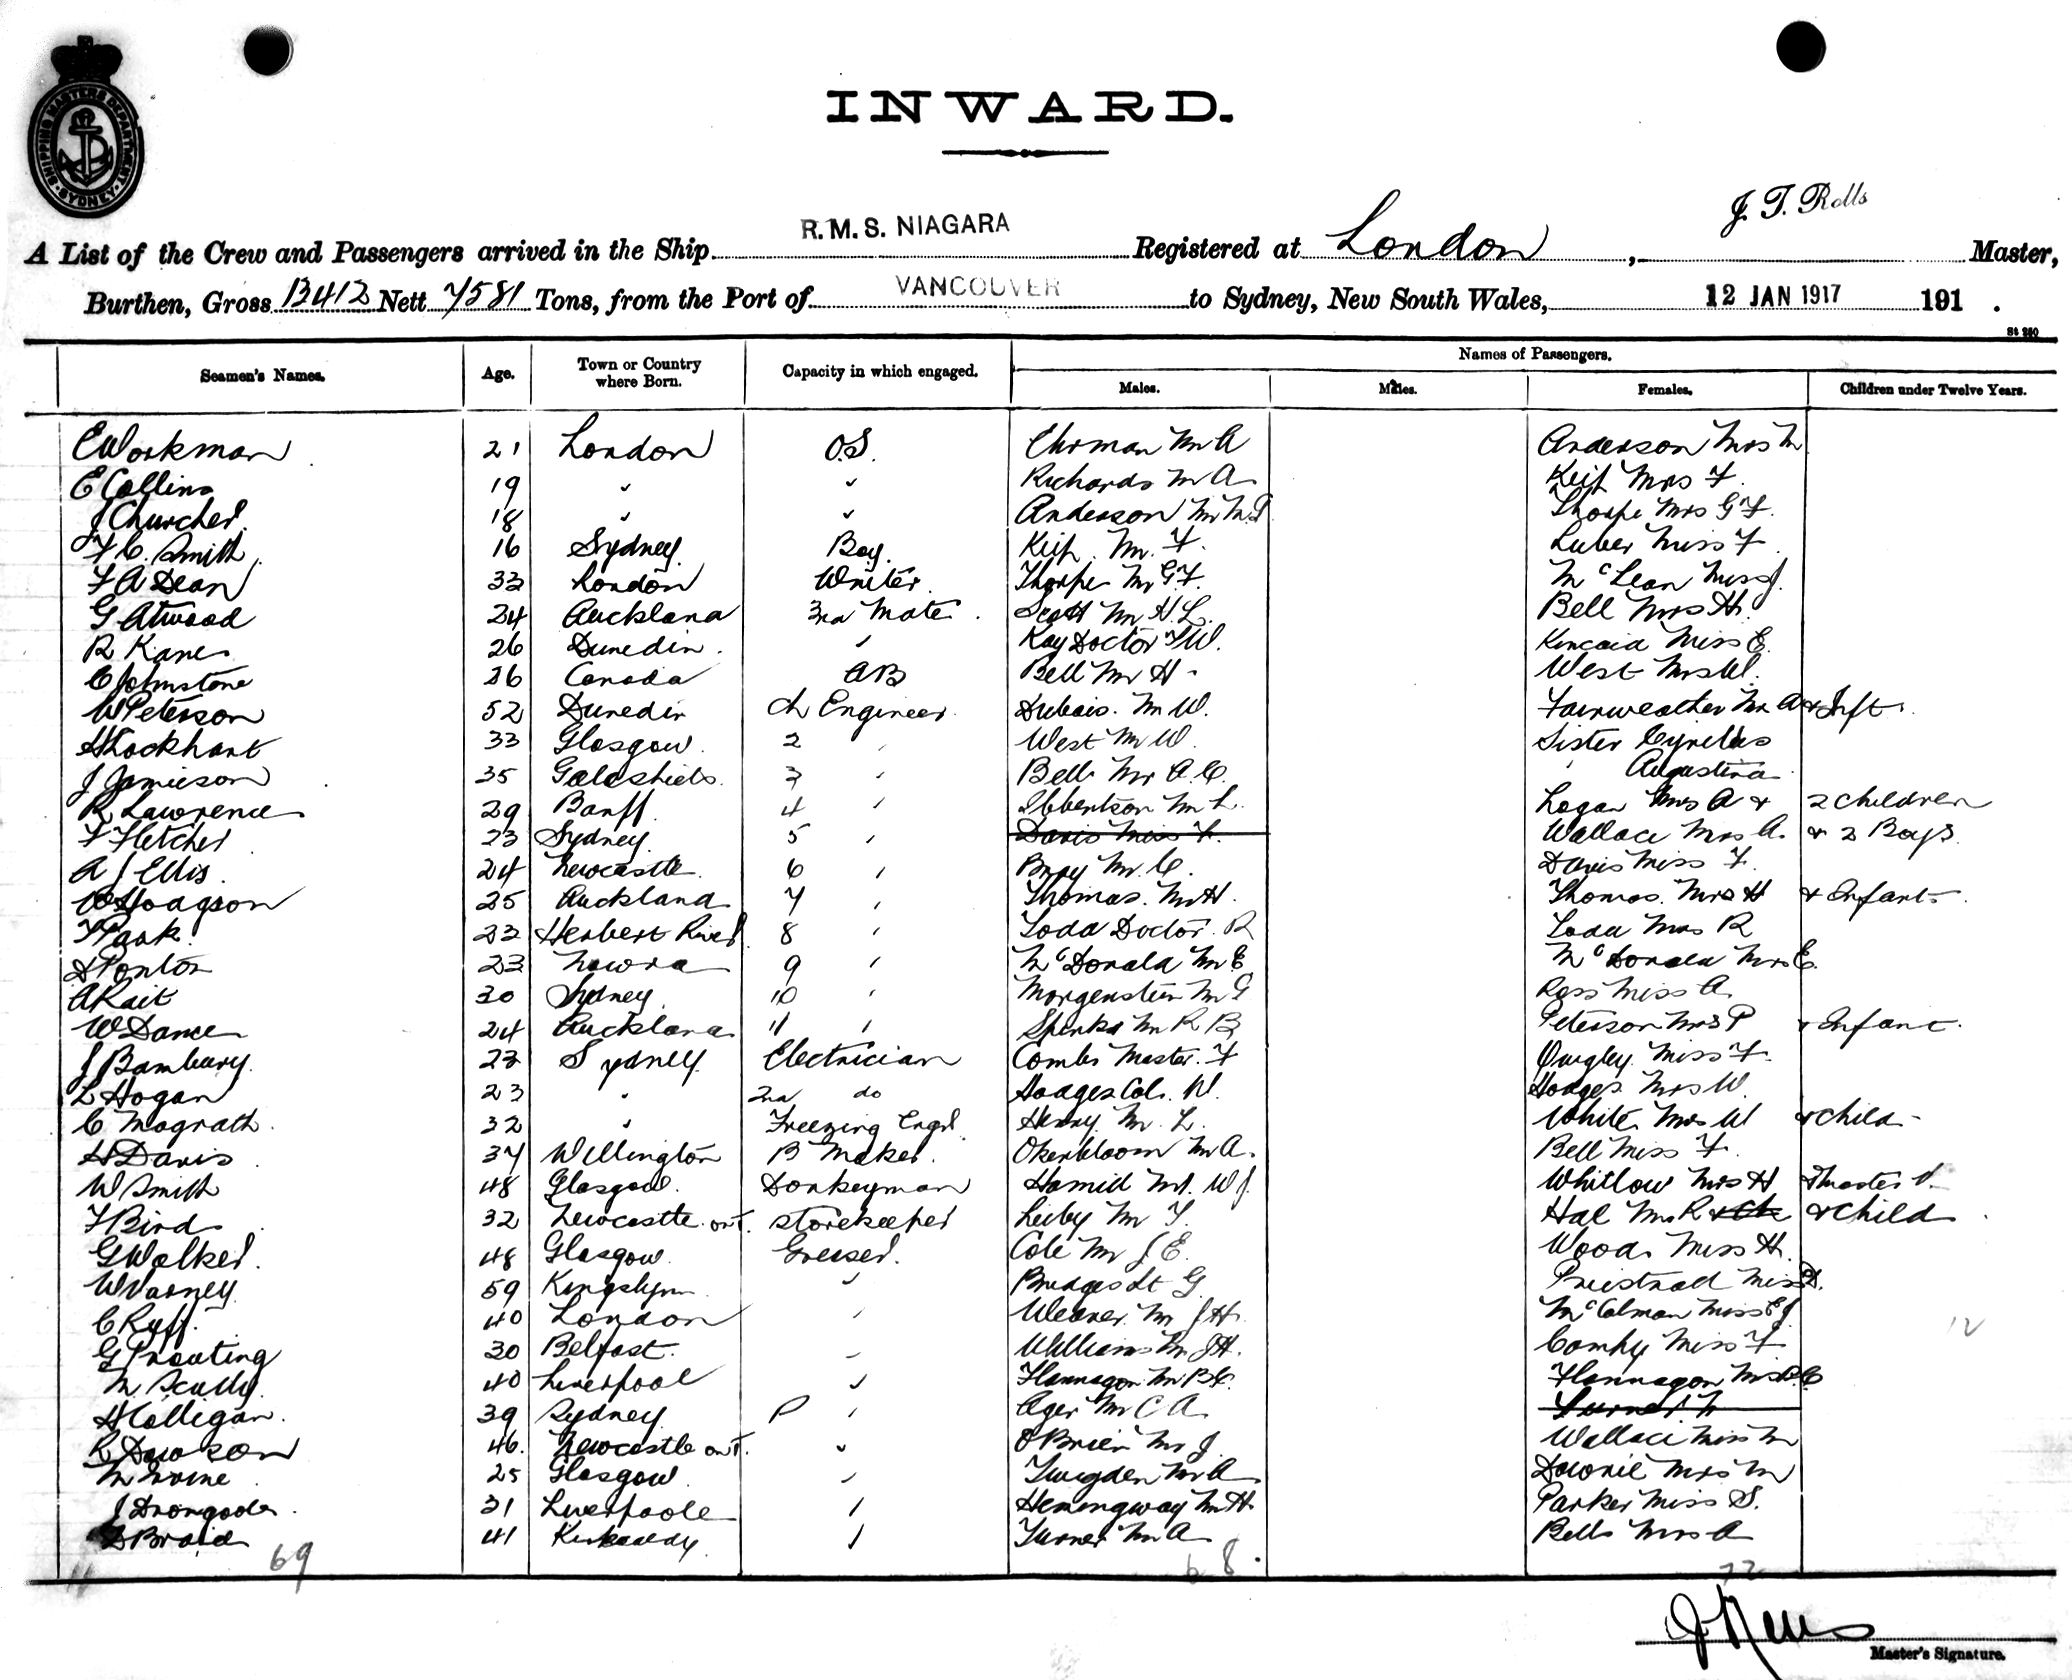 SHIPPING MASTERS DEPARTMENT
SYDNEY
INWARD.
J. T. Rolls
R.M.S. NIAGARA
A List of the Crew and Passengers arrived in the Ship Registered at London, Master,
VANCOUVER
Burthen, Gross 13412 Nett 7581 Tons, from the Port of to Sydney, New South Wales, 12 JAN 1917 191 .
St 260
Names of Passengers.
Seamen's Names. Age. Town or Country where Born. Capacity in which engaged. Males. Males. Females. Children under Twelve Years.
E Workman 21 London O.S. Ehrman Mr A Anderson Mrs M
E Collins 19 " " Richards Mr A Keif Mrs F.
J Churcher 18 " " Anderson Mr Thorpe Mrs G F.
F C. Smith 16 Sydney Boy Keif Mr. F. Luber Miss F
F A Dean 33 London Writer Thorpe Mr G F. McLean Miss J.
G Atwood 24 Auckland 3rd Mate Scott Mr H L. Bell Mrs H.
R Kane 26 Dunedin " Kay Doctor W. Kincaid Miss E
C Johnstone 26 Canada AB Bell Mr H West Mrs W.
W Peterson 52 Dunedin Ch Engineer Dubois Mr W. Fairweather Mrs A & Inft.
H Lockhart 33 Glasgow 2 " West Mr W. Sister Cyrillus
J Jamieson 35 Galashiels 3 " Bell Mr A. C. " Augustina
R Lawrence 29 Banff 4 " Ibbertson Mr L. Logan Mrs A & 2 children
F Fletcher 23 Sydney 5 " Davis Miss F. Wallace Mrs A. & 2 Boys
A J Ellis 24 Newcastle 6 " Bray Mr. C. Davis Miss F.
Hodgson 25 Auckland 7 " Thomas. Mr H. Thomas. Mrs H & Infant
Park 22 Herbert River 8 " Toda Doctor R Toda Mrs R
Ponton 23 Nowra 9 " McDonald Mr E McDonald Mrs E.
A Rait 30 Sydney 10 " Morgenstein Mr G Ross Miss A.
W Dance 24 Auckland 11 " Spinks Mr R B Peterson Mrs P & Infant.
J Bambury 22 Sydney Electrician Combs Master. F Quigley Miss F.
L Hogan 23 " 2nd do Hodges Col. W. Hodges Mrs W.
C Magrath 32 " Freezing Engr. Henry Mr. L. White Mrs W & child
H Davis 37 Wellington B Maker. Okerbloom Mr A. Bell Miss F.
W Smith 48 Glasgow Donkeyman Hamill Mr. W J. Whitlow Mrs H & Master
F Bird 32 Newcastle on T. Storekeeper Leiby Mr Hal Mrs R & Ch & child
G Walker 48 Glasgow Greaser. Cole Mr J E. Wood Miss H.
W Varney 59 Kingslynn " Bridges Lt G. Miss
C Ruff 40 London " Weaver Mr J H. McColman Miss E J
G Prouting 30 Belfast. " Williams Mr J H. Miss F 12
M. Scully 40 Liverpool " Flannagon Mr B C. Flannagon Mrs B. C
H Colligan 39 Sydney P " Ager Mr C A. Turner
R Dawson 46. Newcastle on T. " O'Brien Mr J. Wallace Miss M
M Irvine 25 Glasgow " Twigden Mr A Downie Mrs M
J Drongoole 31 Liverpoole " Hemingway Mr H Parker Miss S.
D Braid 41 Kirkcaldy " Turner Mr A Bell Mrs A
11 69 68 72
Master's Signature.